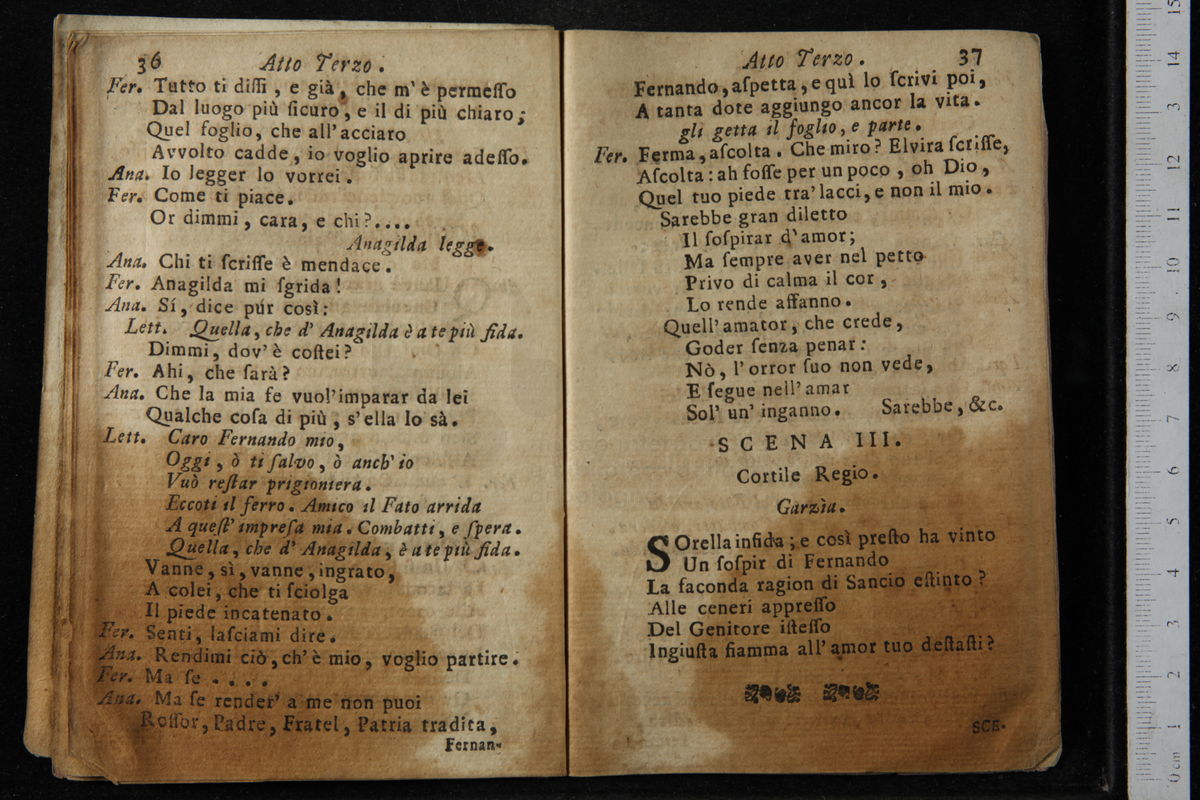 36 Atto Terzo.
Fer. Tutto ti diſſi, e già, che m'è permeſſo
Dal luogo più ſicuro, e il di più chiaro;
Quel foglio, che all'acciaro
Avvolto cadde, io voglio aprire adeſſo.
Ana. Io legger lo vorrei.
Fer. Come ti piace.
Or dimmi, cara, e chi?....
Anagilda legge.
Ana. Chi ti ſcriſſe è mendace.
Fer. Anagilda mi ſgrida!
Ana. Sí, dice pur così:
Lett. Quella, che d'Anagilda è a te più fida.
Dimmi, dov'è coſtei?
Fer. Ahi, che ſarà?
Ana. Che la mia fe vuol'imparar da lei
Qualche coſa di più, s'ella lo sà.
Lett. Caro Fernando mio,
Oggi, ò ti ſalvo, ò anch'io
Vuò reſtar prigioniera.
Eccoti il ferro. Amico il Fato arrida
A queſt'impreſa mia. Combatti, e ſpera.
Quella, che d'Anagilda, è a te più fida.
Vanne, sì, vanne, ingrato,
A colei, che ti ſciolga
Il piede incatenato.
Fer. Senti, laſciami dire.
Ana. Rendimi ciò, ch'è mio, voglio partire.
Fer. Ma ſe ....
Ana. Ma ſe render' a me non puoi
Roſſor, Padre, Fratel, Patria tradita,
Fernan-
Atto Terzo. 37
Fernando, aſpetta, e quì lo ſcrivi poi,
A tanta dote aggiungo ancor la vita.
gli getta il foglio, e parte.
Fer. Ferma, aſcolta. Che miro? Elvira ſcriſſe,
Aſcolta: ah foſſe per un poco, oh Dio,
Quel tuo piede tra' lacci, e non il mio.
Sarebbe gran diletto
Il ſoſpirar d'amor;
Ma ſempre aver nel petto
Privo di calma il cor,
Lo rende affanno.
Quell'amator, che crede,
Goder ſenza penar:
Nò, l'orror ſuo non vede,
E ſegue nell'amar
Sol' un' inganno. Sarebbe, &c.
SCENA III.
Cortile Regio.
Garzìa.
SOrella infida; e così preſto ha vinto
Un ſoſpir di Fernando
La faconda ragion di Sancio eſtinto?
Alle ceneri appreſſo
Del Genitore iſteſſo
Ingiuſta fiamma all'amor tuo deſtaſti?
SCE-
0 cm 1 2 3 4 5 6 7 8 9 10 11 12 13 14 15